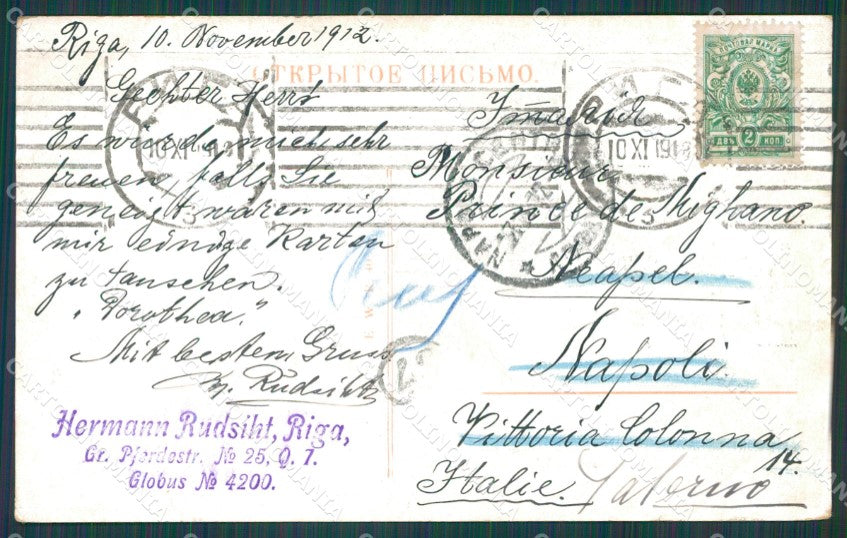 Riga, 10. November 1912.
ОТКРЫТОЕ ПИСЬМО.
Geehter Herr!
Es würde mich sehr
freuen falls Sie
geneigt wären mit
mir einige Karten
zu tauschen.
„Dorothea."
Mit bestem Gruss
H. Rudsiht
Hermann Rudsiht, Riga,
Gr. Pferdestr. № 25, Q. 7.
Globus № 4200.
ПОЧТОВАЯ МАРКА
ДВѢ 2 КОП.
РИГА
10 XI 191
РИГА
10 XI 191
Италія
Monsieur
Prince de Mighano.
Neapel.
Napoli
Vittoria Colonna
14.
Italie.
Palermo
NAPOLI
CARTOLINOMANIA